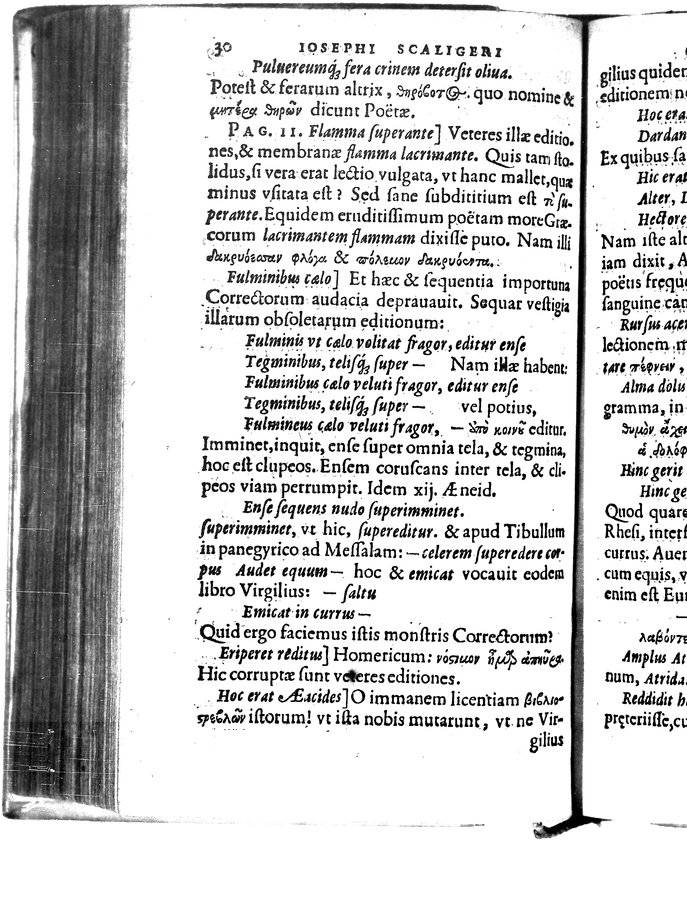 30 IOSEPHI SCALIGERI
Puluereumq́; fera crinem detersit oliua.
Potest & ferarum altrix, θηρόβοτος. quo nomine &
μητέρα θηρῶν dicunt Poëtæ.
PAG. 11. Flamma superante] Veteres illæ editio-
nes, & membranæ flamma lacrimante. Quis tam sto-
lidus, si vera erat lectio vulgata, vt hanc mallet, quæ
minus vsitata est? Sed sane subdititium est τὸ su-
perante. Equidem eruditissimum poëtam more Græ-
corum lacrimantem flammam dixisse puto. Nam illi
δακρυόεσσαν φλόγα & πόλεμον δακρυόεντα.
Fulminibus cælo] Et hæc & sequentia importuna
Correctorum audacia deprauauit. Sequar vestigia
illarum obsoletarum editionum:
Fulminis vt cælo volitat fragor, editur ense
Tegminibus, telisq́; super — Nam illæ habent:
Fulminibus cælo veluti fragor, editur ense
Tegminibus, telisq́; super — vel potius,
Fulmineus cælo veluti fragor, — ἀπὸ κοινοῦ editur.
Imminet, inquit, ense super omnia tela, & tegmina,
hoc est clupeos. Ensem coruscans inter tela, & cli-
peos viam perrumpit. Idem xij. Æneid.
Ense sequens nudo superimminet.
superimminet, vt hic, supereditur. & apud Tibullum
in panegyrico ad Messalam: — celerem superedere cor-
pus Audet equum — hoc & emicat vocauit eodem
libro Virgilius: — saltu
Emicat in currus —
Quid ergo faciemus istis monstris Correctorum?
Eriperet reditus] Homericum: νόστιμον ἦμαρ ἀπηύρα.
Hic corruptæ sunt veteres editiones.
Hoc erat Æacides] O immanem licentiam βιβλιο-
στρεβλῶν istorum! vt ista nobis mutarunt, vt ne Vir-
gilius
gilius quidem
editionem n
Hoc era
Dardan
Ex quibus fa
Hic erat
Alter, I
Hectore
Nam iste alt
iam dixit, A
poëtis frequ
sanguine can
Rursus acer
lectionem m
tare πέφνειν,
Alma dolus
gramma, in
θυμὸν ἀχε
ἁ δολόφ
Hinc gerit
Hinc ge
Quod quare
Rhesi, interf
currus. Auer
cum equis, v
enim est Eur
λαβόντε
Amplus At
num, Atrida
Reddidit h
præteriisse, cu